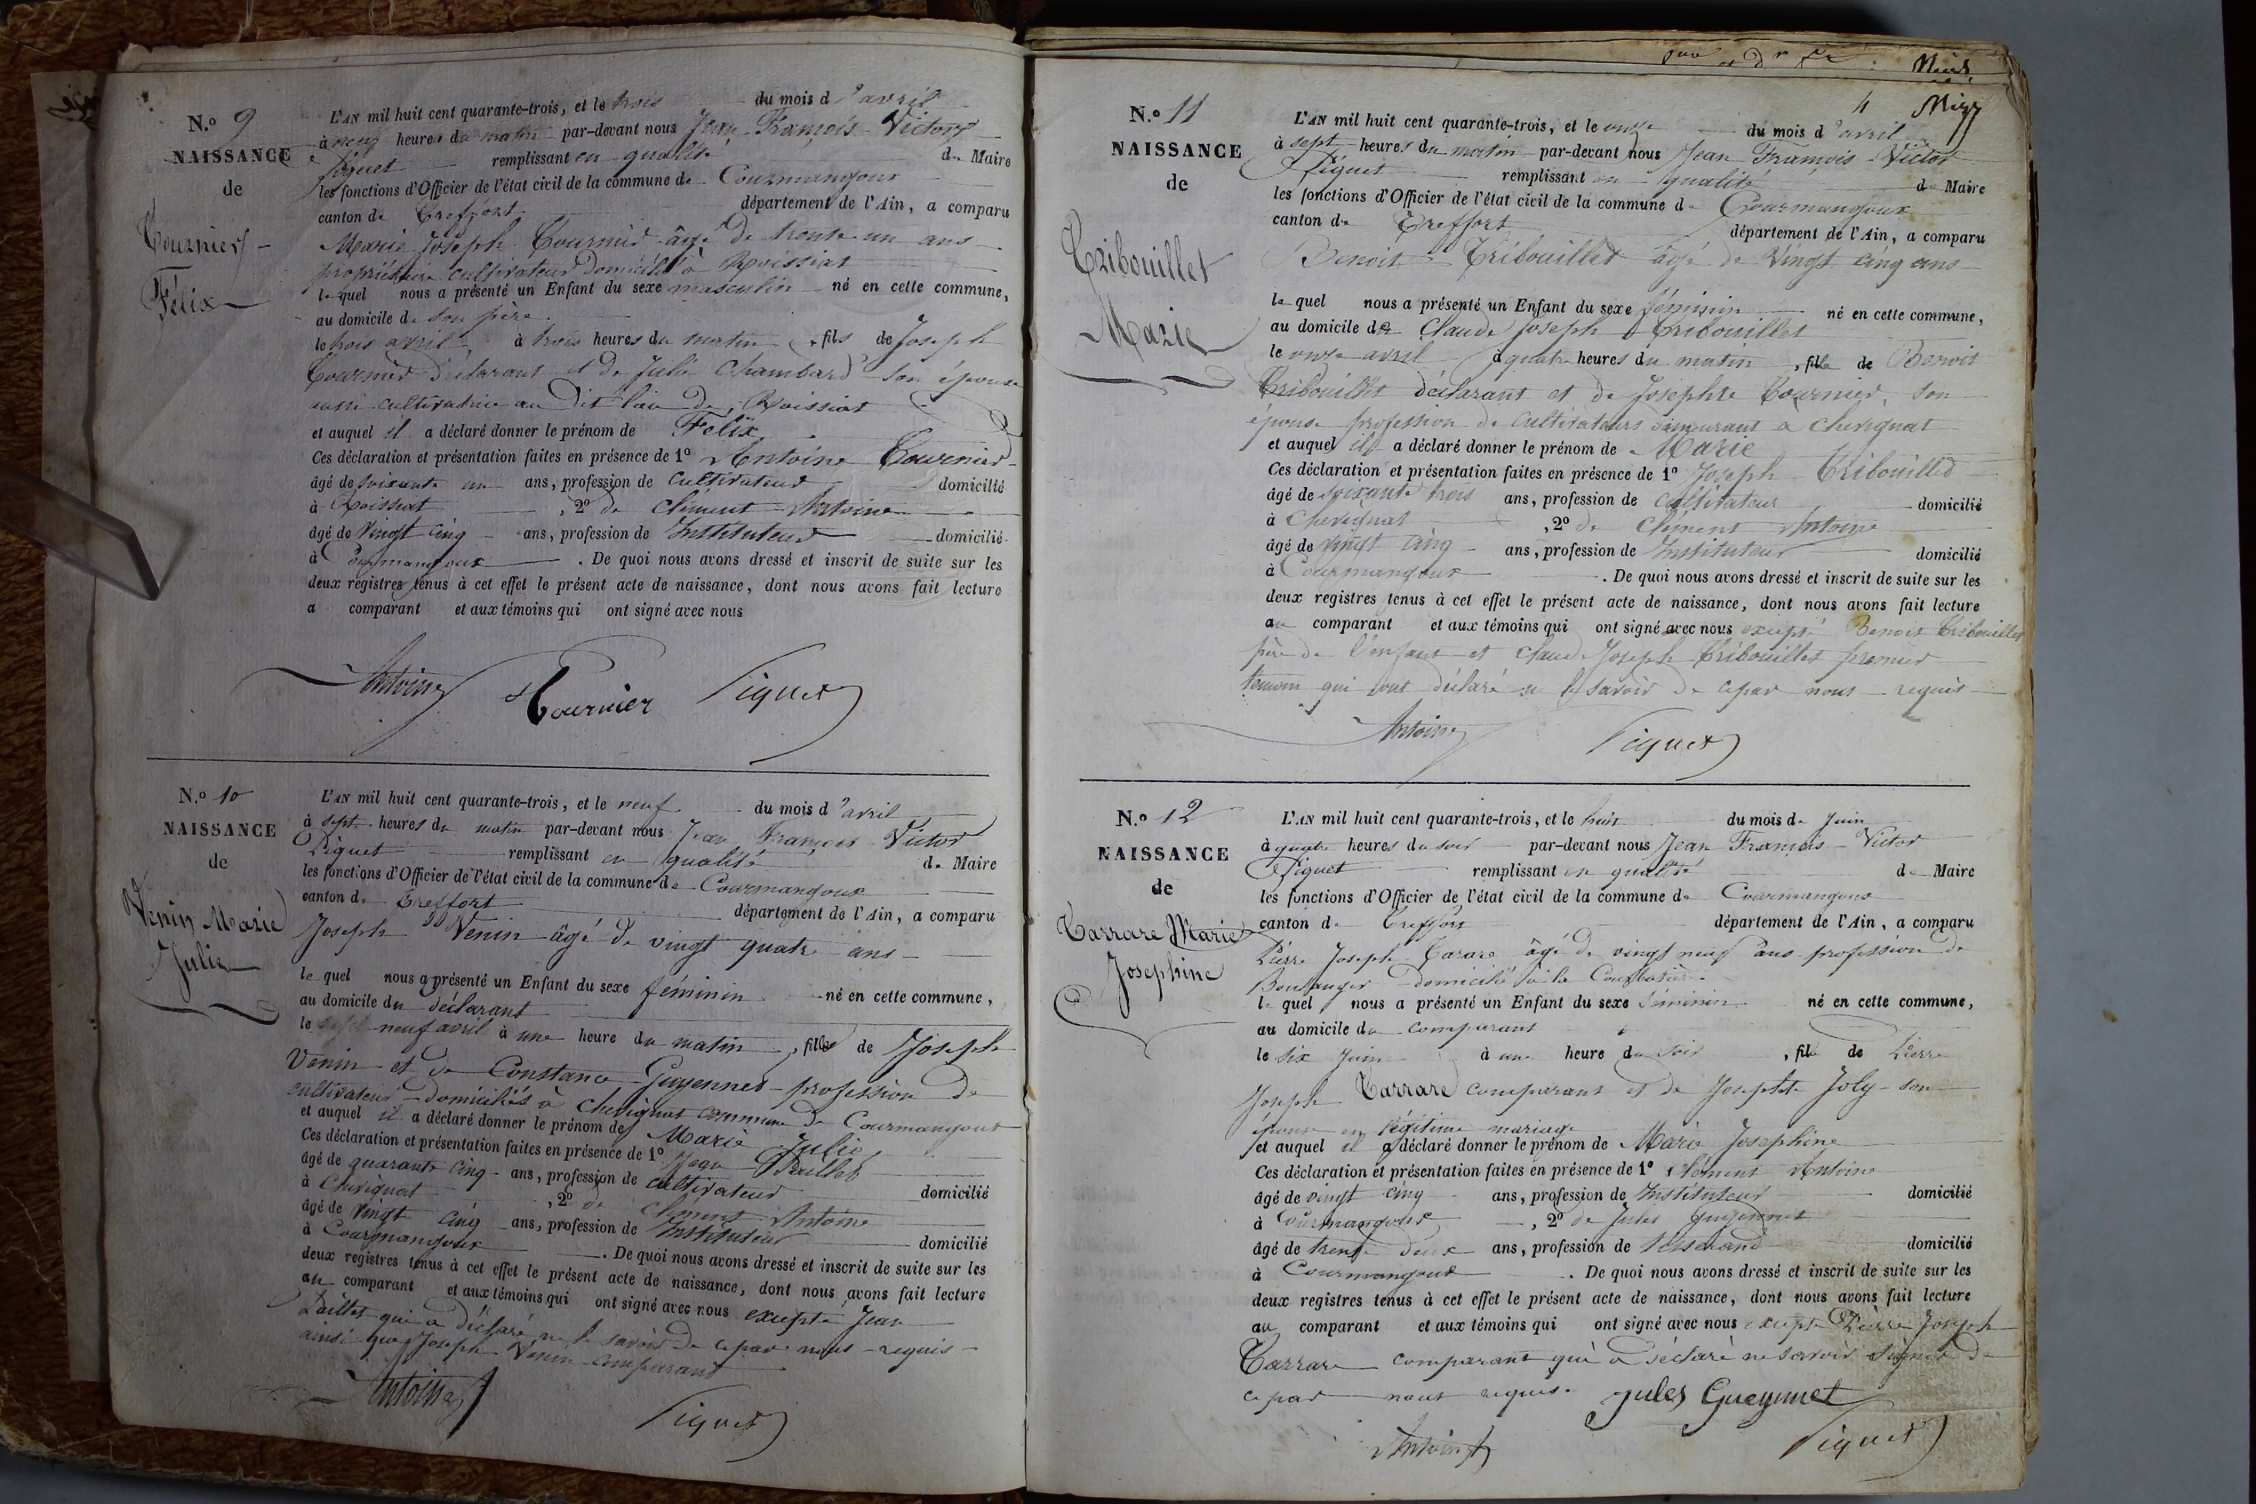 N.º 9
NAISSANCE
de
Tournier
Félix
L'AN mil huit cent quarante-trois, et le trois du mois d'avril
à neuf heures du matin par-devant nous Jean François Victor
Piquet remplissant en qualité de Maire
les fonctions d'Officier de l'état civil de la commune de Courmangoux
canton de Treffort département de l'Ain, a comparu
Marie Joseph Tournier âgé de trente un ans
propriétaire cultivateur domicilié à Roissiat
lequel nous a présenté un Enfant du sexe masculin né en cette commune,
au domicile de son père
le trois avril à trois heures du matin, fils de Joseph
Tournier déclarant et de Julie Chambard son épouse
aussi cultivatrice au dit lieu de Roissiat
et auquel il a déclaré donner le prénom de Felix
Ces déclaration et présentation faites en présence de 1º Antoine Tournier
âgé de soixante un ans, profession de cultivateur domicilié
à Roissiat, 2º de Clément Antoine
âgé de vingt cinq ans, profession de Instituteur domicilié
à Courmangoux. De quoi nous avons dressé et inscrit de suite sur les
deux registres tenus à cet effet le présent acte de naissance, dont nous avons fait lecture
a comparant et aux témoins qui ont signé avec nous
Antoine Tournier Piquet
N.º 10
NAISSANCE
de
Venin Marie
Julie
L'AN mil huit cent quarante-trois, et le neuf du mois d'avril
à sept heures du matin par-devant nous Jean François Victor
Piquet remplissant en qualité de Maire
les fonctions d'Officier de l'état civil de la commune de Courmangoux
canton de Treffort département de l'Ain, a comparu
Joseph Venin âgé de vingt quatre ans
lequel nous a présenté un Enfant du sexe féminin né en cette commune,
au domicile du déclarant
le neuf avril à une heure du matin, fille de Joseph
Venin et de Constance Guyennet profession de
cultivateur domiciliés à Chevignat commune de Courmangoux
et auquel il a déclaré donner le prénom de Marie Julie
Ces déclaration et présentation faites en présence de 1º Jean
âgé de quarante cinq ans, profession de cultivateur domicilié
à Chevignat, 2º de Clément Antoine
âgé de vingt cinq ans, profession de Instituteur domicilié
à Courmangoux. De quoi nous avons dressé et inscrit de suite sur les
deux registres tenus à cet effet le présent acte de naissance, dont nous avons fait lecture
au comparant et aux témoins qui ont signé avec nous excepté Jean
qui a déclaré ne le savoir de ce par nous requis
ainsi que Joseph Venin comparant
Antoine Piquet
4
N.º 11
NAISSANCE
de
Tribouillet
Marie
L'AN mil huit cent quarante-trois, et le onze du mois d'avril
à sept heures du matin par-devant nous Jean François Victor
Piquet remplissant en qualité de Maire
les fonctions d'Officier de l'état civil de la commune de Courmangoux
canton de Treffort département de l'Ain, a comparu
Benoit Tribouillet âgé de vingt cinq ans
lequel nous a présenté un Enfant du sexe féminin né en cette commune,
au domicile de Claude Joseph Tribouillet
le onze avril à quatre heures du matin, fille de Benoit
Tribouillet déclarant et de Josephte Tournier, son
épouse profession de cultivateurs demeurant à Chevignat
et auquel il a déclaré donner le prénom de Marie
Ces déclaration et présentation faites en présence de 1º Joseph Tribouillet
âgé de soixante trois ans, profession de cultivateur domicilié
à Chevignat, 2º de Clément Antoine
âgé de vingt cinq ans, profession de Instituteur domicilié
à Courmangoux. De quoi nous avons dressé et inscrit de suite sur les
deux registres tenus à cet effet le présent acte de naissance, dont nous avons fait lecture
au comparant et aux témoins qui ont signé avec nous excepté Benoit Tribouillet
père de l'enfant et Claude Joseph Tribouillet premier
temoin qui ont déclaré ne le savoir de ce par nous requis
Antoine Piquet
N.º 12
NAISSANCE
de
Carrare Marie
Josephine
L'AN mil huit cent quarante-trois, et le huit du mois de Juin
à quatre heures du soir par-devant nous Jean François Victor
Piquet remplissant en qualité de Maire
les fonctions d'Officier de l'état civil de la commune de Courmangoux
canton de Treffort département de l'Ain, a comparu
Pierre Joseph Carare âgé de vingt neuf ans profession de
Boulanger domicilié à la
lequel nous a présenté un Enfant du sexe féminin né en cette commune,
au domicile du comparant
le six Juin à une heure du soir, fille de Pierre
Joseph Carrare comparant et de Josephte Joly son
épouse en légitime mariage
et auquel il a déclaré donner le prénom de Marie Josephine
Ces déclaration et présentation faites en présence de 1º Clément Antoine
âgé de vingt cinq ans, profession de Instituteur domicilié
à Courmangoux, 2º de Jules Guyennet
âgé de trente deux ans, profession de tisserand domicilié
à Courmangoux. De quoi nous avons dressé et inscrit de suite sur les
deux registres tenus à cet effet le présent acte de naissance, dont nous avons fait lecture
au comparant et aux témoins qui ont signé avec nous excepté Pierre Joseph
Carrare comparant qui a déclaré ne savoir signer de
ce par nous requis. Jules Gueynnet
Antoine Piquet